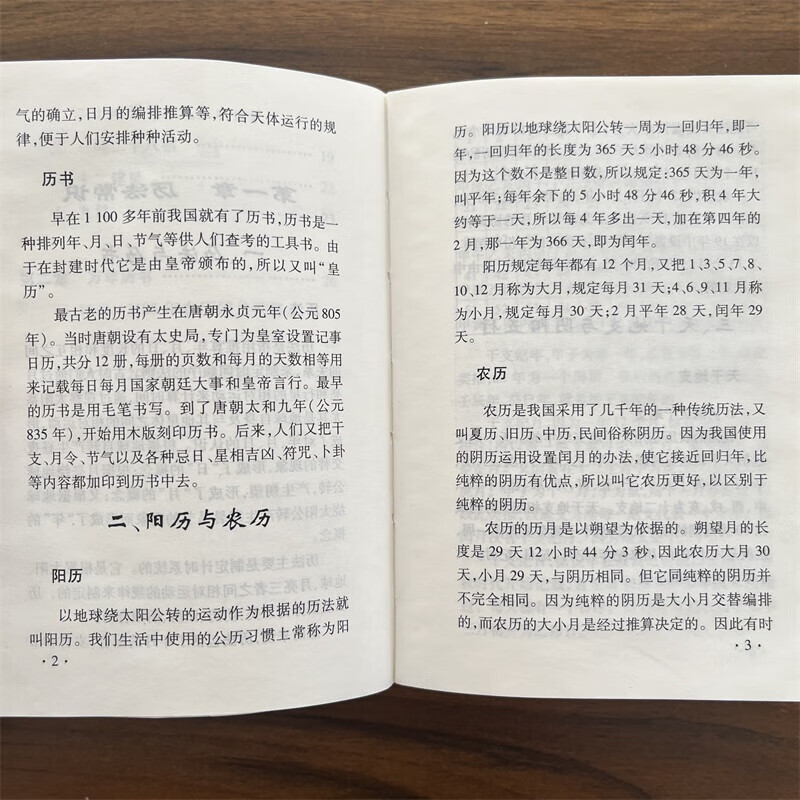 气的确立,日月的编排推算等,符合天体运行的规
律,便于人们安排种种活动。
历书
早在1 100多年前我国就有了历书,历书是一
种排列年、月、日、节气等供人们查考的工具书。由
于在封建时代它是由皇帝颁布的,所以又叫“皇
历”。
最古老的历书产生在唐朝永贞元年(公元805
年)。当时唐朝设有太史局,专门为皇室设置记事
日历,共分12册,每册的页数和每月的天数相等用
来记载每日每月国家朝廷大事和皇帝言行。最早
的历书是用毛笔书写。到了唐朝太和九年(公元
835年),开始用木版刻印历书。后来,人们又把干
支、月令、节气以及各种忌日、星相吉凶、符咒、卜卦
等内容都加印到历书中去。
二、阳历与农历
阳历
以地球绕太阳公转的运动作为根据的历法就
叫阳历。我们生活中使用的公历习惯上常称为阳
·2·
历。阳历以地球绕太阳公转一周为一回归年,即一
年,一回归年的长度为365天5小时48分46秒。
因为这个数不是整日数,所以规定:365天为一年,
叫平年;每年余下的5小时48分46秒,积4年大
约等于一天,所以每4年多出一天,加在第四年的
2月,那一年为366天,即为闰年。
阳历规定每年都有12个月,又把1、3、5、7、8、
10、12月称为大月,规定每月31天;4、6、9、11月称
为小月,规定每月30天;2月平年28天,闰年29
天。
农历
农历是我国采用了几千年的一种传统历法,又
叫夏历、旧历、中历,民间俗称阴历。因为我国使用
的阴历运用设置闰月的办法,使它接近回归年,比
纯粹的阴历有优点,所以叫它农历更好,以区别于
纯粹的阴历。
农历的历月是以朔望为依据的。朔望月的长
度是29天12小时44分3秒,因此农历大月30
天,小月29天,与阴历相同。但它同纯粹的阴历并
不完全相同。因为纯粹的阴历是大小月交替编排
的,而农历的大小月是经过推算决定的。因此有时
·3·